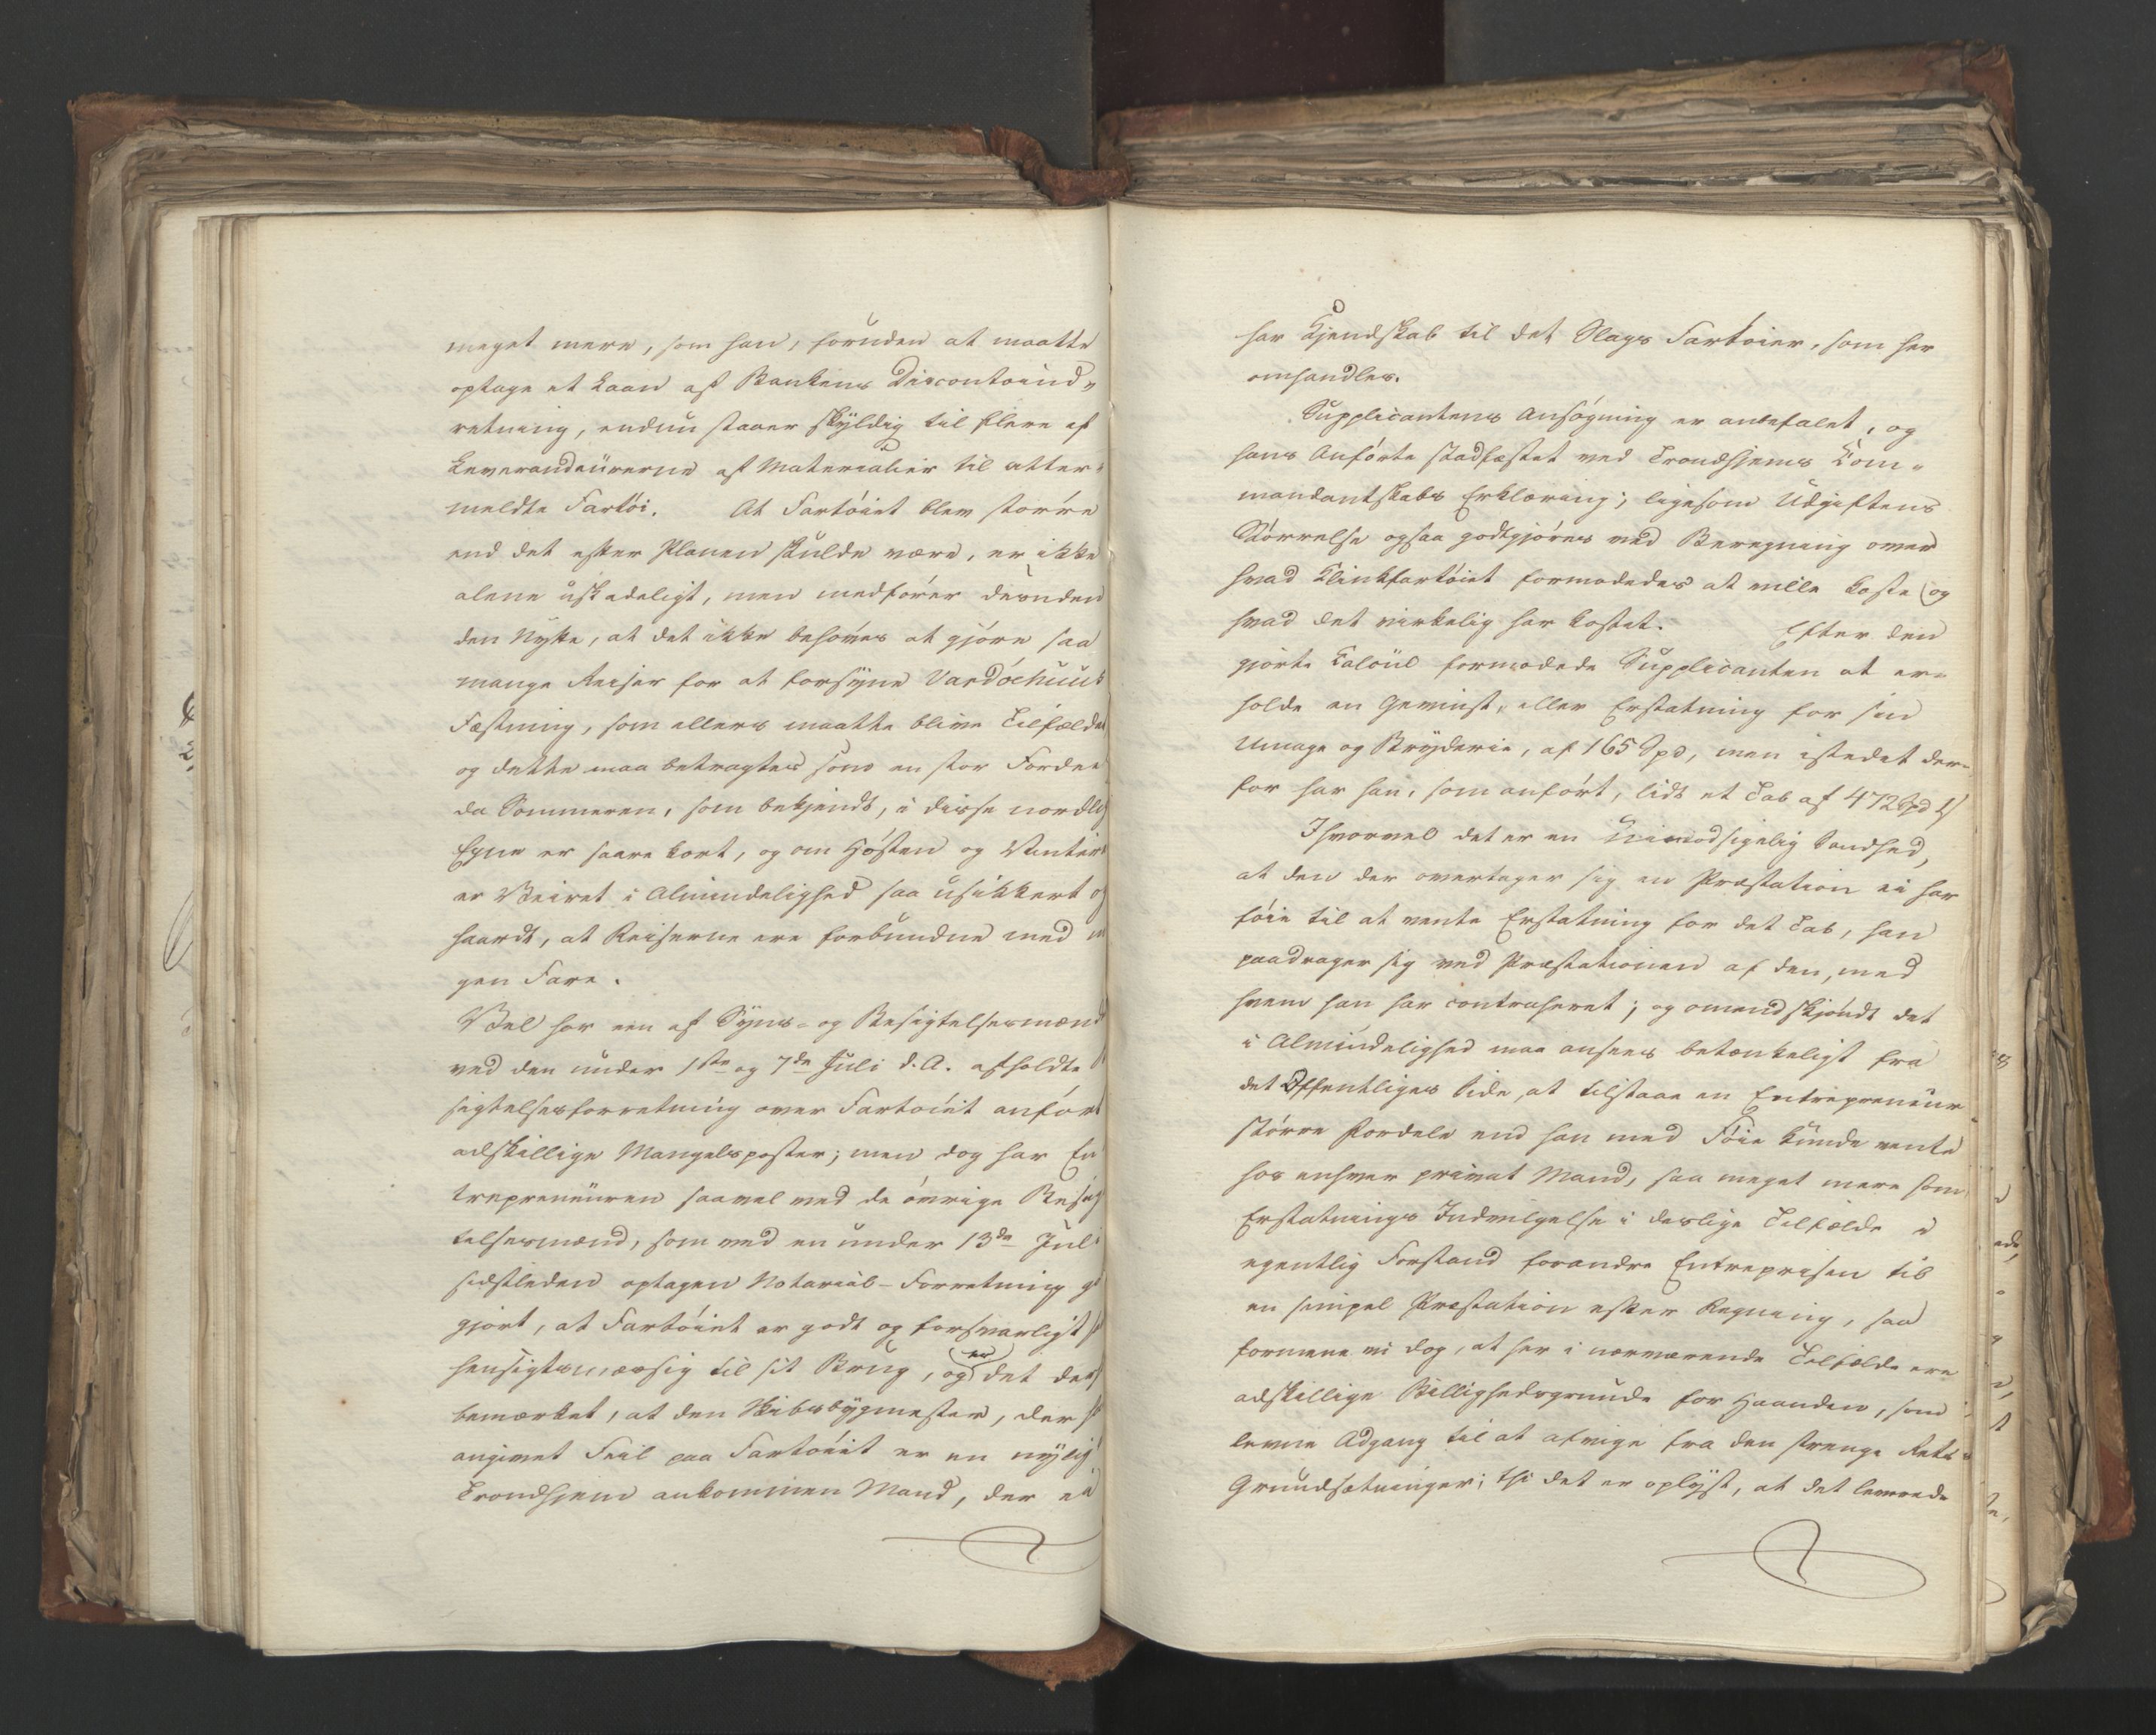 meget mere, som han, foruden at maatte
optage et Laan af Bankens Discontoind-
retning, endnu staaer skyldig til flere af
Leverandeurerne af Materialier til atter-
meldte Fartöi. At Fartöiet blev större
end det efter Planen skulde være, er ikke
alene uskadeligt, men medförer desuden
den Nytte, at det ikke behöves at gjöre saa
mange Reiser for at forsyne Vardöehuus
Fæstning, som ellers maatte blive Tilfældet
og dette maa betragtes som en stor Fordee
da Sommeren, som bekjendt, i disse nordlig
Egne er saare kort, og om Hösten og Vinter
er Veiret i Almindelighed saa usikkert og
haardt, at Reiserne ere forbundne med m
gen Fare.
Vel har een af Syns- og Besigtelsesmænd
ved den under 1ste og 7de Juli d. A. afholdte
sigtelsesforretning over Fartöiet anfört
adskillige Mangelsposter; men dog har En
trepreneuren saavel ved de övrige Besig
telsesmænd, som ved en under 13de Juli
sidstleden optagen Notarial-Forretning g
gjort, at Fartöiet er godt og forsvarligt
hensigtsmæssig til sit Brug, og er det der
bemærket, at den Skibsbygmester, der
angivet Feil paa Fartöiet er en nylig
Trondhjem ankommen Mand, der ei
har Kjendskab til det Slags Fartöier, som her
omhandles.
Supplicantens Ansögning er anbefalet, og
hans Anförte stadfæstet ved Trondhjems Kom-
mandantskabs Erklæring; ligesom Udgiftens
Störrelse ogsaa godtgjöres ved Beregning over
hvad Klinkfartöiet formodedes at ville koste og
hvad det virkelig har kostet. Efter den
gjorte Calcul formodede Supplicanten at er-
holde en Gevinst, eller Erstatning for sin
Umage og Bryderie, af 165 Spd, men istedet der-
for har han, som anfört, lidt et Tab af 472 Spd
Ihvorvel det er en uimodsigelig Sandhed,
at den der overtager sig en Præstation ei har
föie til at vente Erstatning for det Tab, han
paadrager sig ved Præstationen af den, med
hvem han har contraheret; og omendskjöndt det
i Almindelighed maa ansees betænkeligt fra
det Offentliges Side, at tilstaae en Entrepreneur
större Fordele end han med Föie kunde vente
hos enhver privat Mand, saa meget mere som
Erstatnings Indvilgelse i deslige Tilfælde i
egentlig Forstand forandre Entreprisen til
en simpel Præstation efter Regning, saa
formene vi dog, at her i nærværende Tilfælde ere
adskillige Billighedsgrunde for Haanden, som
levne Adgang til at afvige fra den strenge Rets-
Grundsætninger; thi det er oplyst, at det leverede